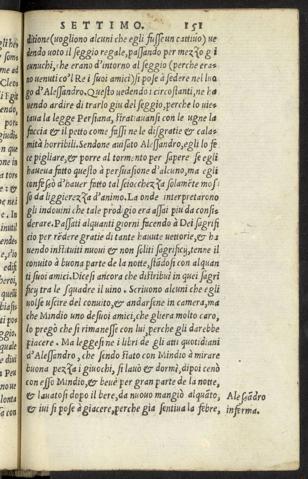 SETTIMO. 151
ditione (uogliono alcuni che egli fusse un cattiuo) ue
dendo uoto il seggio regale, passando per mezzo gi
eunuchi, che erano d'intorno al seggio (perche eras
no uenuti co'l Re i suoi amici) si pose à sedere nel luo
go d'Alessandro. Questo uedendo i circostanti, ne ha
uendo ardire di trarlo giu del seggio, perche lo uie
taua la legge Persiana, stratiauansi con le ugne la
faccia & il petto come fussi ne le disgratie & cala
mità horribili. Sendone auisato Alessandro, egli lo fe
ce pigliare, & porre al tormento per sapere se egli
haueua fatto questo à persuasione d'alcuno, ma egli
confessò d'hauer fatto tal sciocchezza solamēte mos
so da liggierezza d'animo. La onde interpretarono
gli indouini che tale prodigio era assai piu da consi
derare. Passati alquanti giorni facendo à Dei sagrifi
cio per rēdere gratie di tante hauute uettorie, & ha
uendo instituiti nuoui & non soliti sagrificy, tenne il
conuito à buona parte de la notte, stādosi con alquan
ti suoi amici. Dicesi ancora che distribuì in quei sagri
ficy tra le squadre il uino. Scriuono alcuni che egli
uolse uscire del conuito, & andarsene in camera, ma
che Mindio uno de suoi amici, che gliera molto caro,
lo pregò che si rimanesse con lui, perche gli darebbe
piacere. Ma leggesi ne i libri de gli atti quotidiani
d'Alessandro, che sendo stato con Mindio à mirare
buona pezza i giuochi, si lauò & dormì, dipoi cenò
con esso Mindio, & beuè per gran parte de la notte,
& lauatosi dopo il bere, da nuouo mangiò alquāto,
& iui si pose à giacere, perche gia sentiua la febre,
Alessādro
infermo.